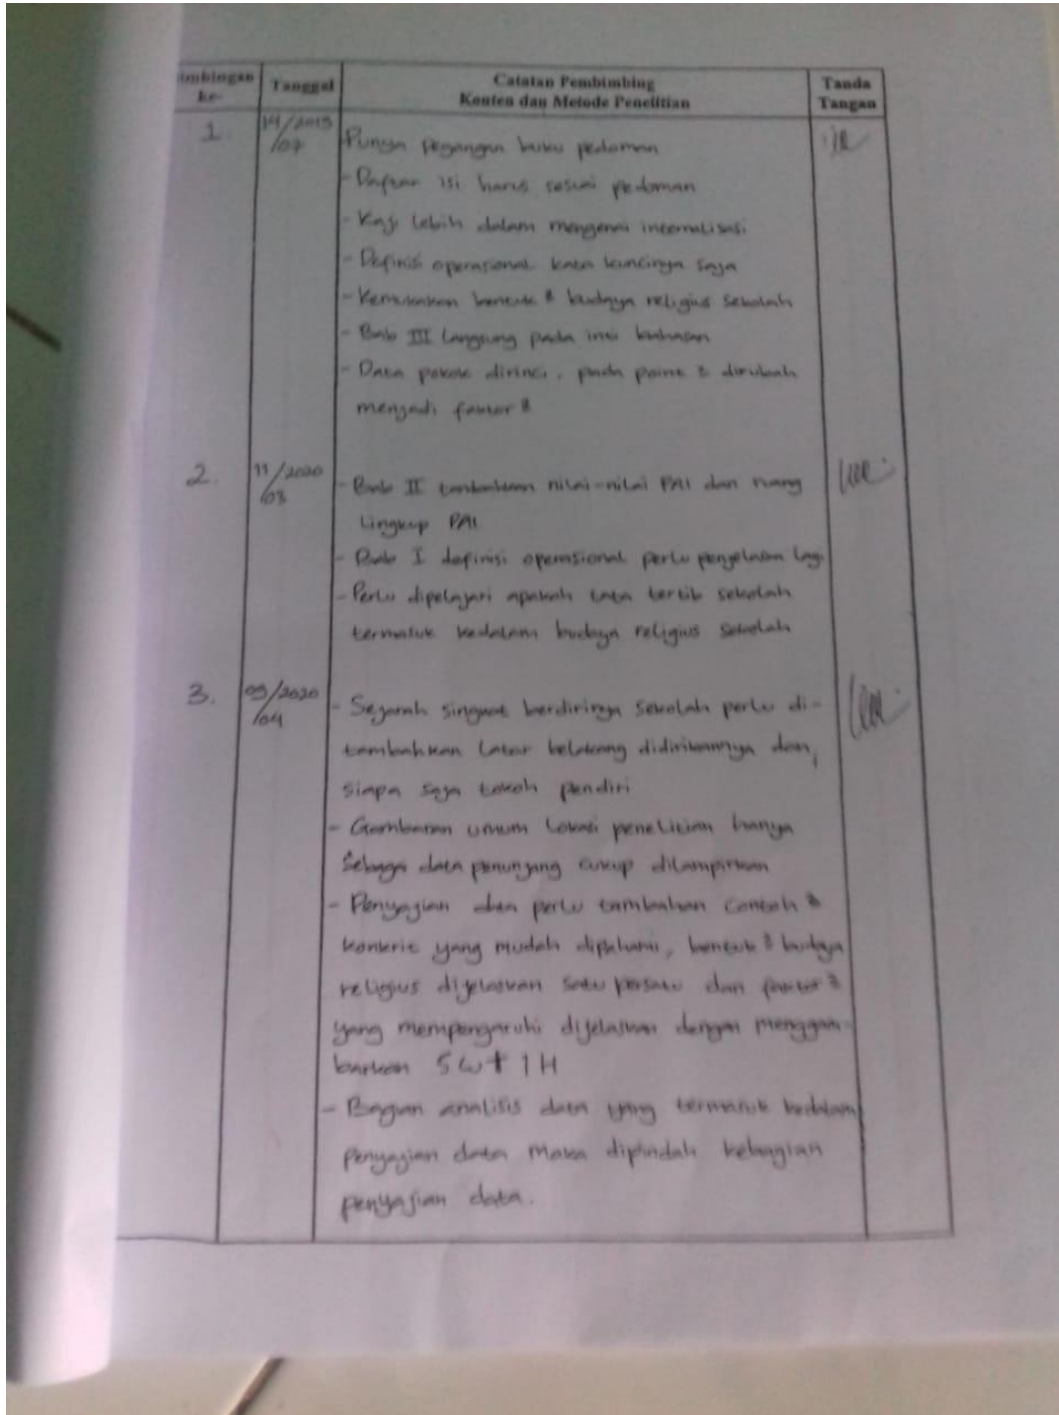 imbingan ke-
Tanggal
Catatan Pembimbing
Konten dan Metode Penelitian
Tanda Tangan
1
14/2019
/07
Punya pegangan buku pedoman
- Daftar isi harus sesuai pedoman
- Kaji lebih dalam mengenai internalisasi
- Definisi operasional kata kuncinya saja
- Kemukakan bentuk² budaya religius sekolah
- Bab III langsung pada inti bahasan
- Data pokok dirinci, pada point 2 dirubah
menjadi faktor²
2.
11/2020
/03
- Bab II tambahkan nilai-nilai PAI dan ruang
Lingkup PAI
- Bab I definisi operasional perlu penjelasan lagi
- Perlu dipelajari apakah tata tertib sekolah
termasuk kedalam budaya religius sekolah
3.
09/2020
/04
- Sejarah singkat berdirinya sekolah perlu di-
tambahkan latar belakang didirikannya dan,
siapa saja tokoh pendiri
- Gambaran umum lokasi penelitian hanya
sebagai data penunjang cukup dilampirkan
- Penyajian data perlu tambahan contoh²
konkrit yang mudah dipahami, bentuk² budaya
religius dijelaskan satu persatu dan faktor²
yang mempengaruhi dijelaskan dengan menggam-
barkan 5W+1H
- Bagian analisis data yang termasuk kedalam
penyajian data maka dipindah kebagian
penyajian data.